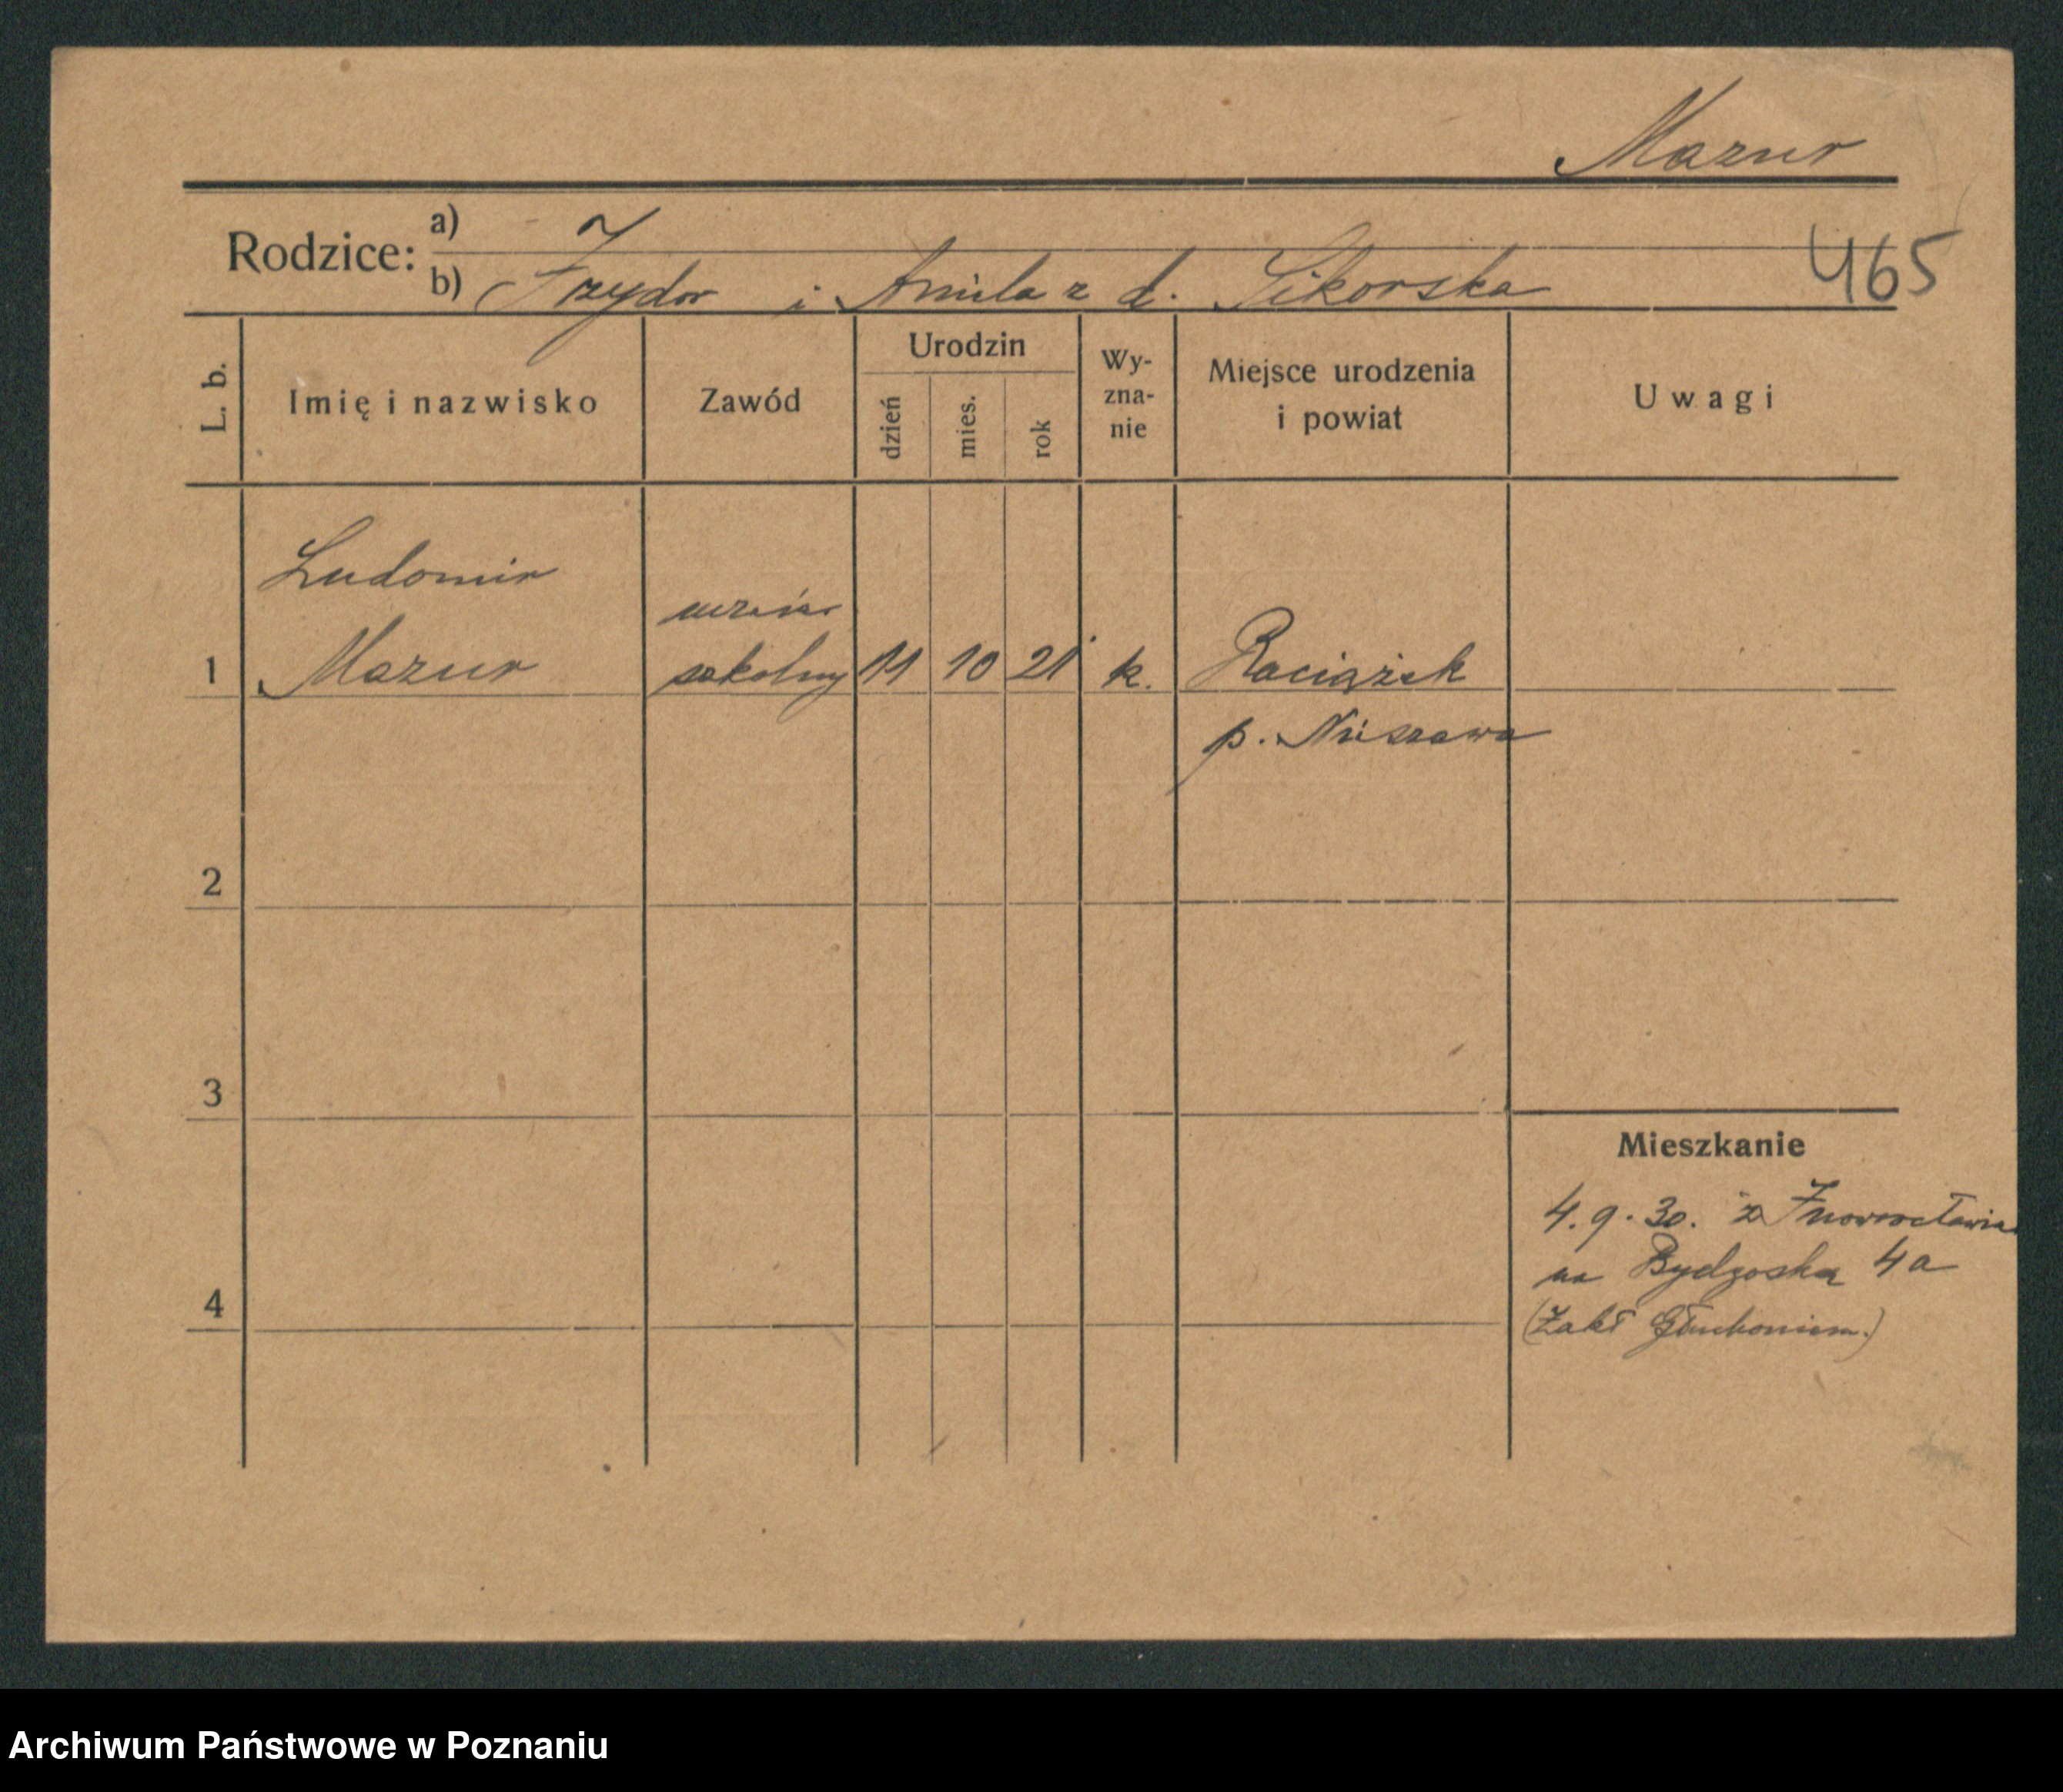 Mazur
Rodzice: a)
b) Izydor i Aniela z d. Sikorska
465
L. b.
Imię i nazwisko
Zawód
Urodzin
dzień
mies.
rok
Wy-
zna-
nie
Miejsce urodzenia
i powiat
Uwagi
Ludomir
uczeń
1 Mazur szkolny 11 10 21 k. Raciążek
p. Nieszawa
2
3
Mieszkanie
4.9.30. z Inowrocławia
na Bydgoska 4a
4
(Zakł Głuchoniem.)
Archiwum Państwowe w Poznaniu